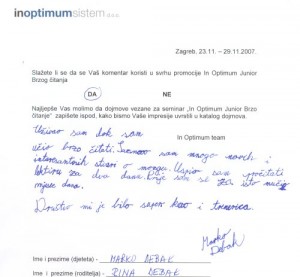 inoptimumsistem d.o.o.
Zagreb, 23.11. – 29.11.2007.
Slažete li se da se Vaš komentar koristi u svrhu promocije In Optimum Junior
Brzog čitanja
DA NE
Najljepše Vas molimo da dojmove vezane za seminar „In Optimum Junior Brzo
čitanje" zapišete ispod, kako bismo Vaše impresije uvrstili u katalog dojmova.
In Optimum team
Uživao sam dok sam
učio brzo čitati. sam mnogo novih i
interesantnih stvari o mozgu. Uspio sam pročitati
lektiru za dva dana. Prije sam se za isto mučio
mjesec dana.
Društvo mi je bilo super kao i trenerica.
Marko
Debak
Ime i prezime (djeteta) - MARKO DEBAK
Ime i prezime (roditelja) - DEBAK